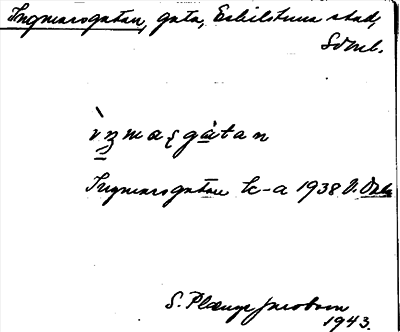 Ingmarsgatan, gata, Eskilstuna stad,
Södml.
ìŋmaʂgàtan
Ingmarsgatan tc-a 1938
S. Plænge Jacobson
1943.